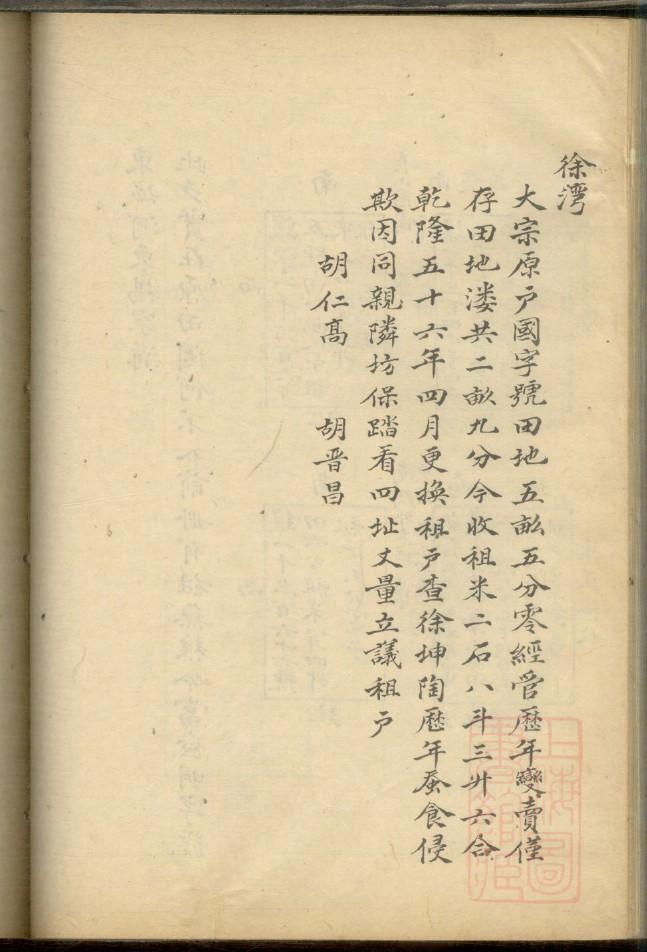 徐灣
大宗原戶國字號田地五畝五分零經管歷年變賣僅
存田地淩共二畝九分今收租米二石八斗三升六合
乾隆五十六年四月更換租戶查徐坤陶歷年蚕食侵
欺因同親隣坊保踏看四址丈量立議租戶
胡仁高　胡晋昌
上海圖書館藏